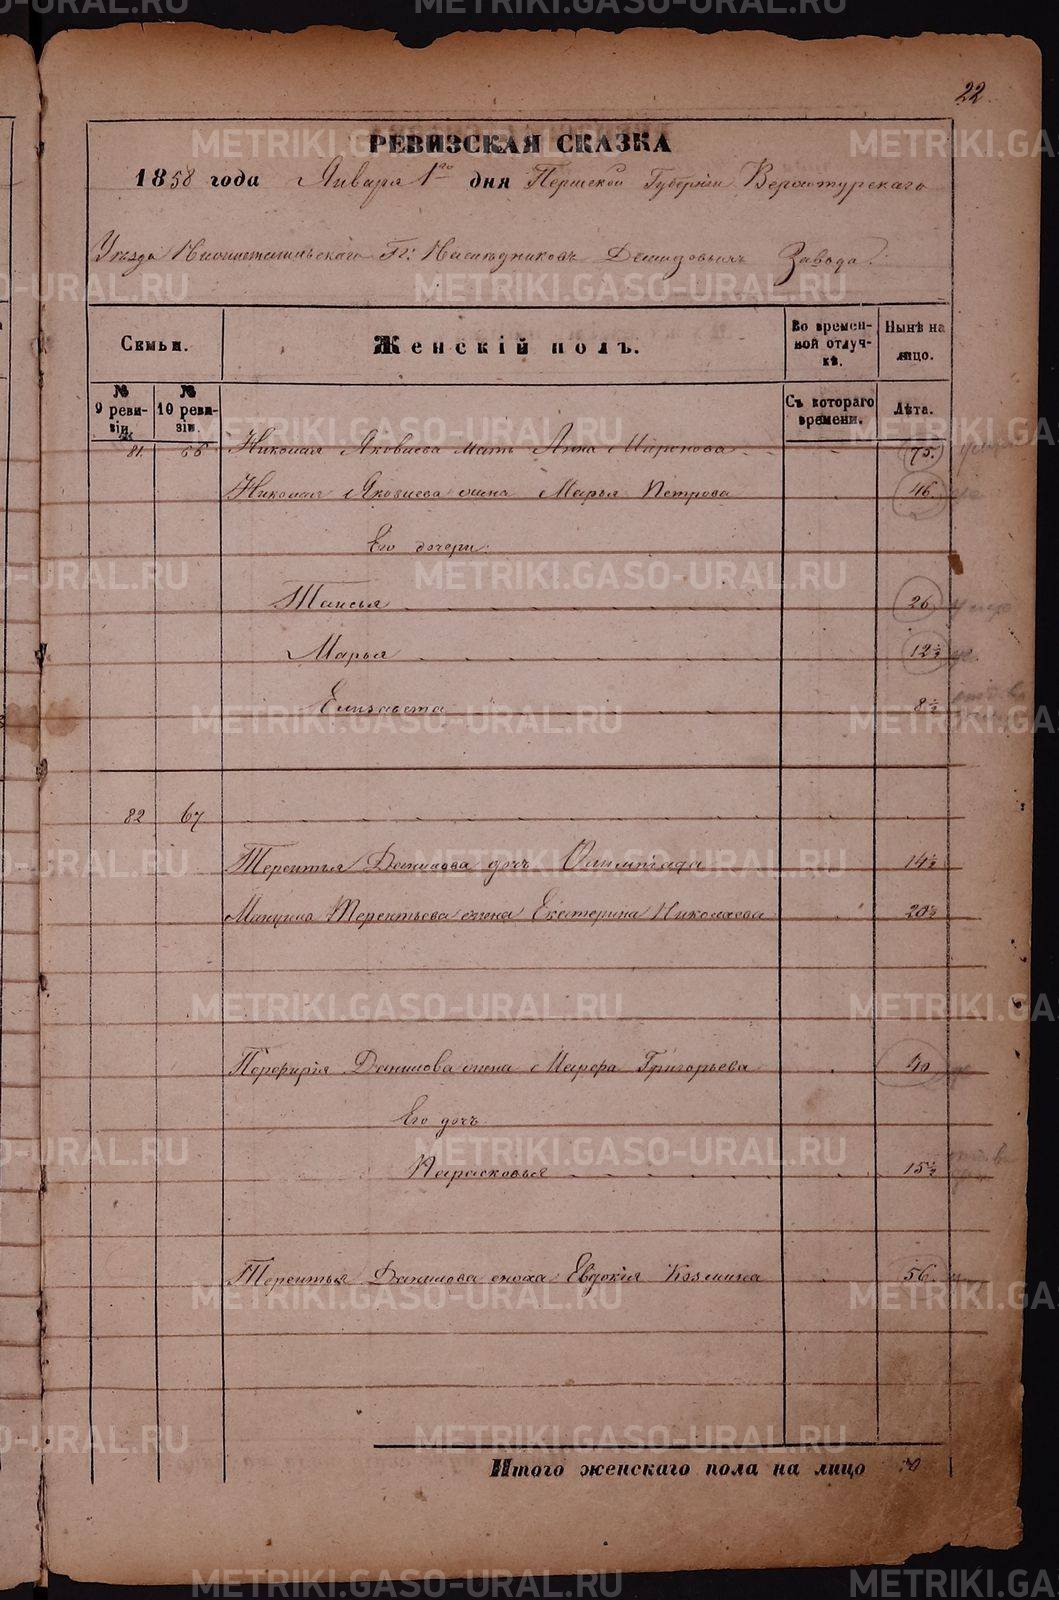 22.
РЕВИЗСКАЯ СКАЗКА
1858 года Января 1го дня Пермской Губернiи Верхотурскаго
Уѣзда Нижнетагильскаго Гг. Наслѣдниковъ Демидовыхъ Завода.
Семьи.
Женскій полъ.
Во времен-
ной отлуч-
кѣ.
Нынѣ на
лицо.
№
9 реви-
зіи.
№
10 реви-
зіи.
Съ котораго
времени.
Лѣта.
81. 66 Николая Яковлева мать Анна Миронова 75.
Николая Яковлева жена Марья Петрова 46.
Его дочери:
Таисья 26
Марья 12½
Елизавета 8½
82 67
Терентья Данилова дочь Олимпiада 14½
Терентьева жена Екатерина Николаева 20½
Перфирiя Данилова жена Марфа Григорьева 40
Его дочь
Парасковья 15½
Терентья Данилова жена Евдокiя Козмина 56.
Итого женскаго пола на лицо 10
METRIKI.GASO-URAL.RU